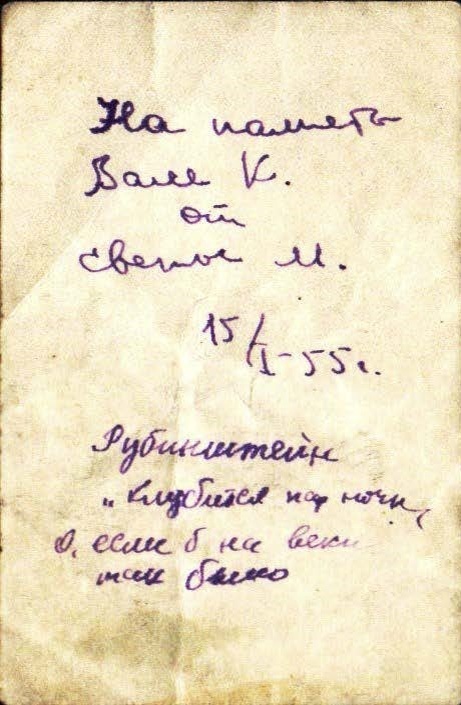 На память
Вале К.
от
Светы М.
15/I-55г.
Рубинштейн
„Клубится ночи,
О, если б на веки
так было